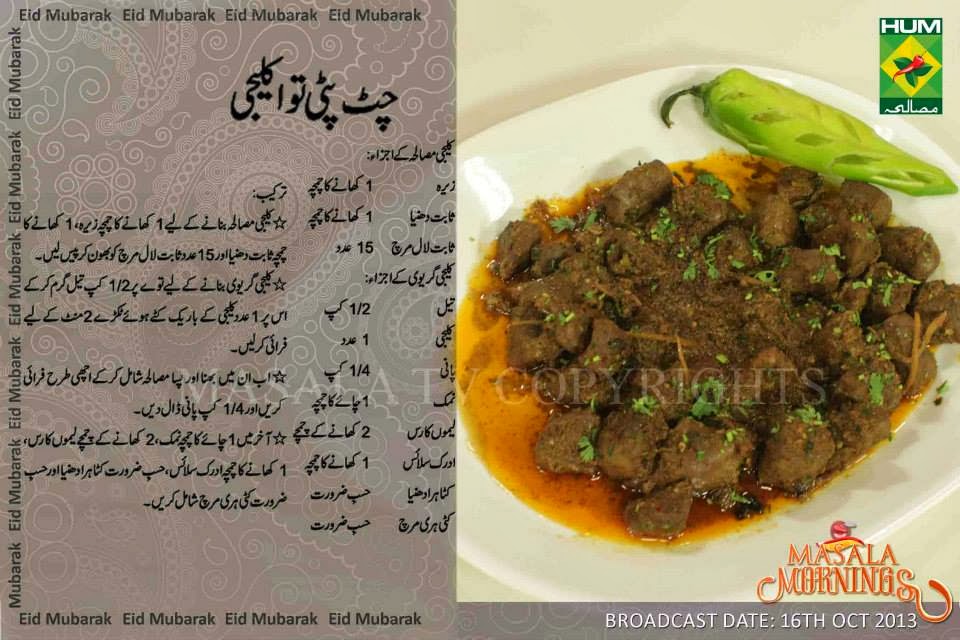 Eid Mubarak Eid Mubarak Eid Mubarak Eid Mubarak
چٹ پٹی توا کلیجی
کلیجی مصالحہ کے اجزاء:
زیرہ 1 کھانے کا چمچہ
ثابت دھنیا 1 کھانے کا چمچہ
ثابت لال مرچ 15 عدد
کلیجی گریوی کے اجزاء:
تیل 1/2 کپ
کلیجی 1 عدد
پانی 1/4 کپ
نمک 1 چائے کا چمچہ
لیموں کا رس 2 کھانے کے چمچے
ادرک سلائس 1 کھانے کا چمچہ
کٹا ہرا دھنیا حسب ضرورت
کٹی ہری مرچ حسب ضرورت
ترکیب:
☆ کلیجی مصالحہ بنانے کے لیے 1 کھانے کا چمچہ زیرہ، 1 کھانے کا
چمچہ ثابت دھنیا اور 15 عدد ثابت لال مرچ کو بھون کر پیس لیں۔
☆ کلیجی گریوی بنانے کے لیے توے پر 1/2 کپ تیل گرم کر کے
اس پر 1 عدد کلیجی کے باریک کٹے ہوئے ٹکڑے 2 منٹ کے لیے
فرائی کر لیں۔
☆ اب ان میں بھنا اور پسا مصالحہ شامل کر کے اچھی طرح فرائی
کریں اور 1/4 کپ پانی ڈال دیں۔
☆ آخر میں 1 چائے کا چمچہ نمک، 2 کھانے کے چمچے لیموں کا رس،
1 کھانے کا چمچہ ادرک سلائس، حسب ضرورت کٹا ہرا دھنیا اور حسب
ضرورت کٹی ہری مرچ شامل کریں۔
Eid Mubarak Eid Mubarak Eid Mubarak Eid Mubarak Eid Mubarak Mubarak
Eid Mubarak Eid Mubarak Eid Mubarak Eid Mubarak
HUM
مصالحہ
MASALA TV COPYRIGHTS
MASALA
MORNINGS
BROADCAST DATE: 16TH OCT 2013